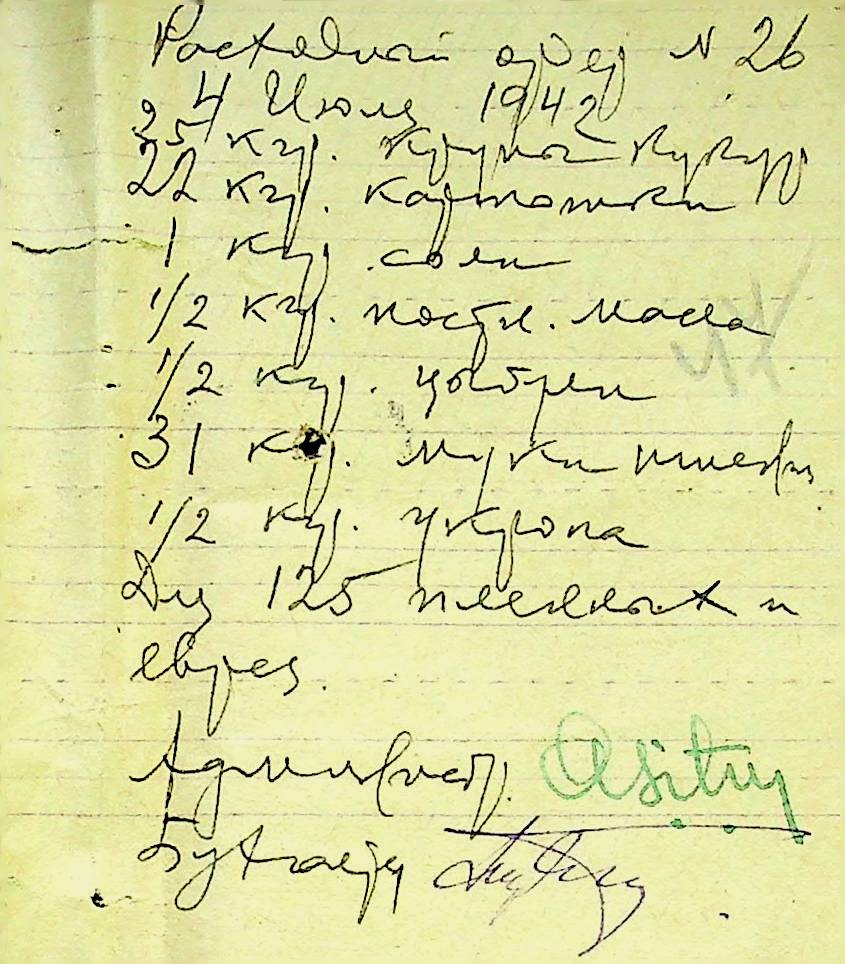 Расходный ордер N 26
4 Июля 1942
35 кгр. крупы кукур
22 кгр. картошки
1 кгр. соли
1/2 кгр. постн. масла
1/2 кгр.
31 кгр. муки пшен
1/2 кгр. укропа
Для 125 пленных и
еврея.
Администр.
Бухгалтер